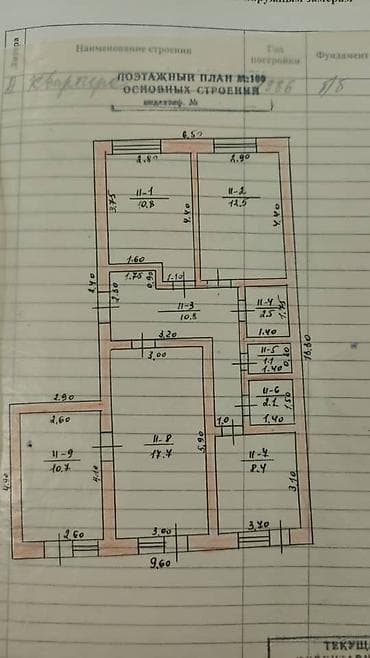 Литера
Наименование строения
Год постройки
Фундамент
II квартира
б/б
ПОЭТАЖНЫЙ ПЛАН М1:100
ОСНОВНЫХ СТРОЕНИЙ
6.50
2.80
2.90
II-1
10.8
3.75
4.40
II-2
12.5
4.40
1.60
1.75
0.90
1.10
2.40
2.80
II-3
10.8
II-4
2.5
1.75
1.40
3.20
3.00
II-5
1.1
0.80
1.40
13.30
II-6
2.1
1.50
1.40
2.90
2.60
1.0
II-9
10.7
4.90
4.10
II-8
17.7
5.90
II-7
8.4
3.10
2.60
3.00
3.70
9.60
ТЕКУЩ